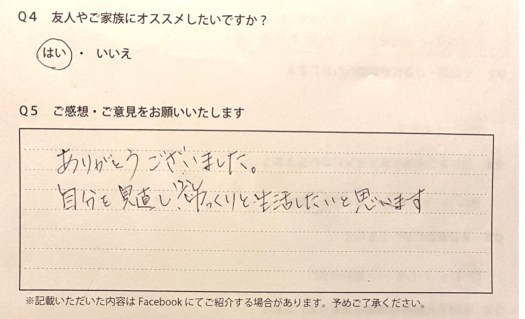 Q4 友人やご家族にオススメしたいですか？
はい ・ いいえ
Q5 ご感想・ご意見をお願いいたします
ありがとうございました。
自分を見直しゆっくりと生活したいと思います
※記載いただいた内容は Facebook にてご紹介する場合があります。予めご了承ください。